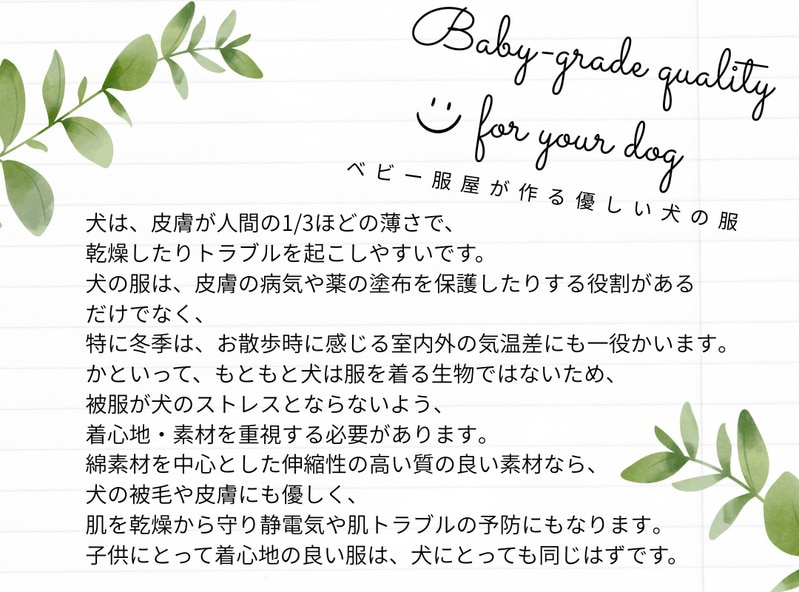 Baby-grade quality
for your dog
ベビー服屋が作る優しい犬の服
犬は、皮膚が人間の1/3ほどの薄さで、
乾燥したりトラブルを起こしやすいです。
犬の服は、皮膚の病気や薬の塗布を保護したりする役割がある
だけでなく、
特に冬季は、お散歩時に感じる室内外の気温差にも一役かいます。
かといって、もともと犬は服を着る生物ではないため、
被服が犬のストレスとならないよう、
着心地・素材を重視する必要があります。
綿素材を中心とした伸縮性の高い質の良い素材なら、
犬の被毛や皮膚にも優しく、
肌を乾燥から守り静電気や肌トラブルの予防にもなります。
子供にとって着心地の良い服は、犬にとっても同じはずです。